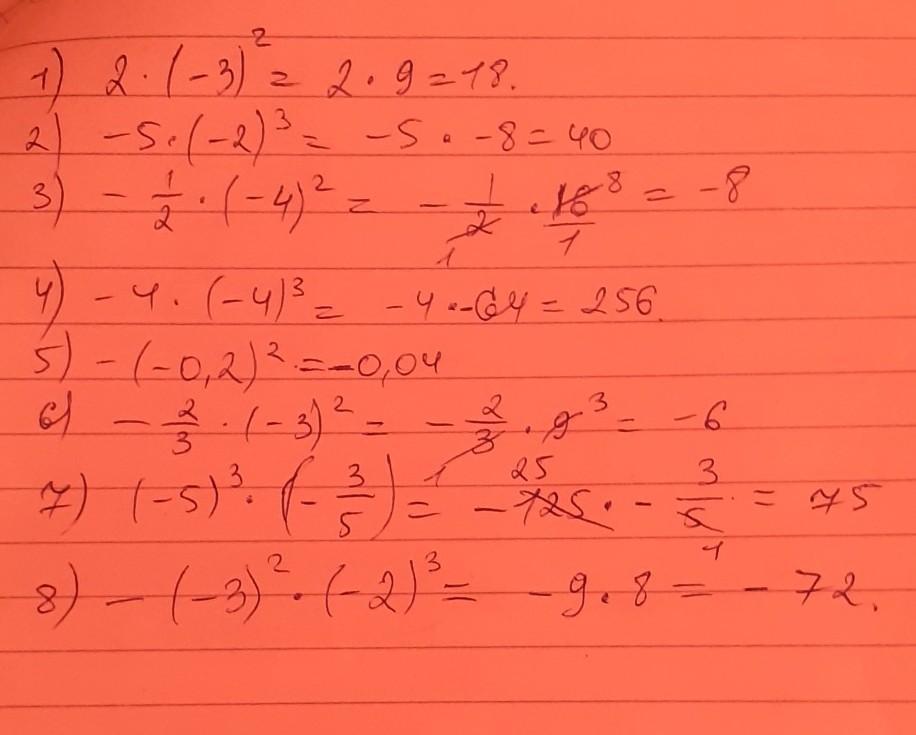 1) 2 · (-3)² = 2 · 9 = 18.
2) -5 · (-2)³ = -5 · -8 = 40
3) - 1/2 · (-4)² = - 1/2 1 · 16 8/1 = -8
4) -4 · (-4)³ = -4 · -64 = 256.
5) -(-0,2)² = -0,04
6) - 2/3 · (-3)² = - 2/3 1 · 9 3 = -6
7) (-5)³ · (- 3/5) = -125 25 · - 3/5 1 = 75
8) -(-3)² · (-2)³ = -9 · 8 = -72.